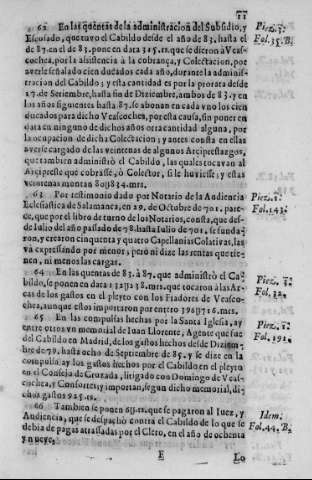 11
62 En las quentas de la administracion del Subsidio, y
Escusado, que tuvo el Cabildo desde el año de 83. hasta el
de 87. en el de 83. pone en data 315 rs. que se dieron à Veas-
cochea, por la assistencia à la cobrança, y Colectacion, por
averle señalado cien ducados cada año, durante la admi-
nistracion de dicho año, y esta cantidad es por la prorata desde
17. de Septiembre, hasta fin de Diziembre, ambos de 83. y en
los años siguientes hasta 87. se abonan en cada vno los cien
ducados para dicho Veascochea, por esta causa, sin poner en
data en ninguno de dichos años otra cantidad alguna, por
la ocupacion de dicha Colectacion; y antes consta en ellas
averse cargado de las veintenas de algunos Arciprestazgos,
que tambien administrò el Cabildo, las quales tocavan al
Arcipreste que cobrasse, ò Colector, si le huviesse; y estas
veintenas montan 80U834. mrs.
63 Por testimonio dado por Notario de la Audiencia
Eclesiastica de Salamanca, en 29. de Octubre de 701. pare-
ce, que por el libro de turno de los Notarios, consta, que des-
de Iulio del año passado de 78. hasta Iulio de 701. se funda-
ron, y crearon cinquenta y quatro Capellanias Colativas, las
và expressando por menor, pero ni dize las rentas que tie-
nen, ni menos las cargas.
64 En las quentas de 83. à 87. que administrò el Ca-
bildo, se ponen en data mrs. que tocaron à las Ar-
cas de los gastos en el pleyto con los Fiadores de Veasco-
chea, aunque estos importaron por entero mrs.
65 En las compulsas hechas por la Santa Iglesia, ay
entre otros vn memorial de Iuan Llorente, Agente que fue
del Cabildo en Madrid, de los gastos hechos desde Diziem-
bre de 79. hasta ocho de Septiembre de 85. y se dize en la
compulsa ay los gastos hechos por el Cabildo en el pleyto
en el Consejo de Cruzada, litigado con Domingo de Veas-
cochea, y Consortes; y importan, segun dicho memorial, di-
chos gastos 925 rs.
66 Tambien se ponen rs. que se pagaron al Iuez, y
Audiencia, que se despachò contra el Cabildo de lo que se
debia de pagas atrassadas por el Clero, en el año de ochenta
y nueve.
E
Lo
Piez. 7.
Fol. 35. B.
Piez. 1.
Fol. 143.
Piez. 7.
Fol. 32.
Piez. 1.
Fol. 191.
Idem.
Fol. 44. B.